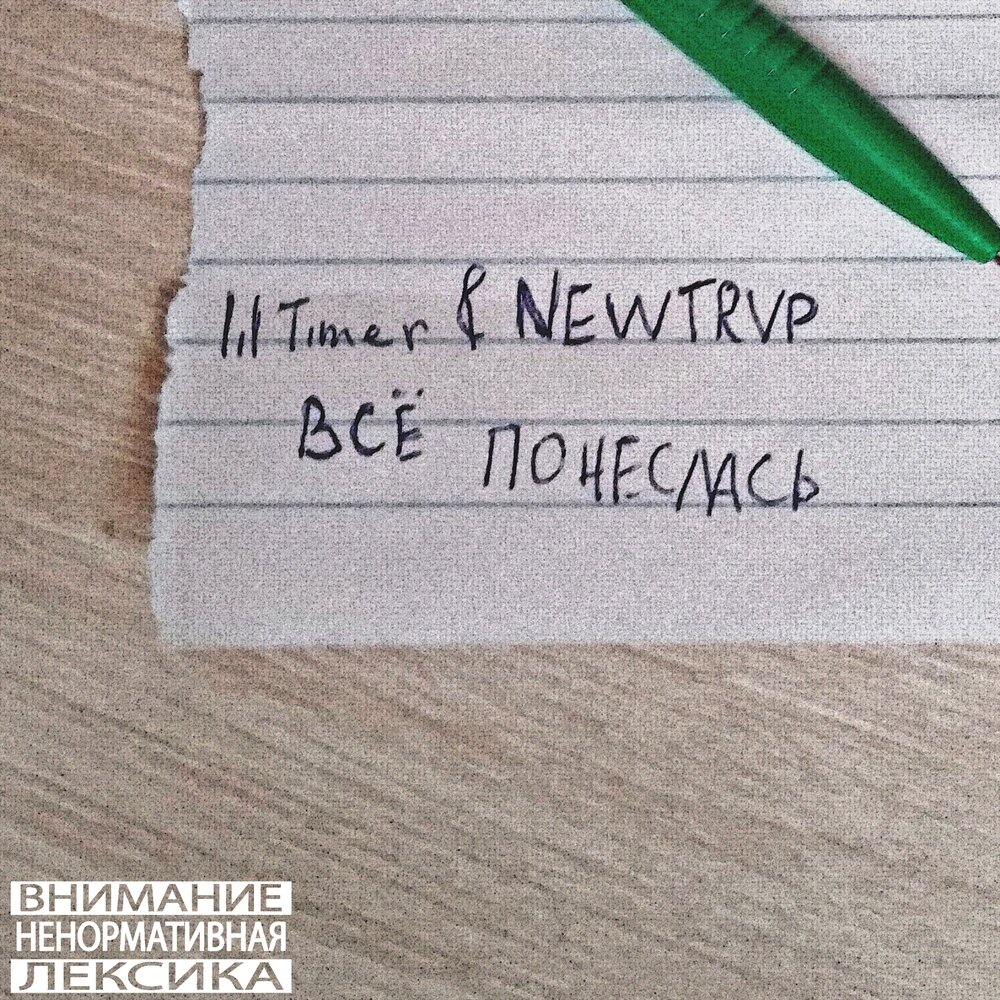 Lil Timer & NEWTRVP
ВСЁ ПОНЕСЛАСЬ
ВНИМАНИЕ
НЕНОРМАТИВНАЯ
ЛЕКСИКА